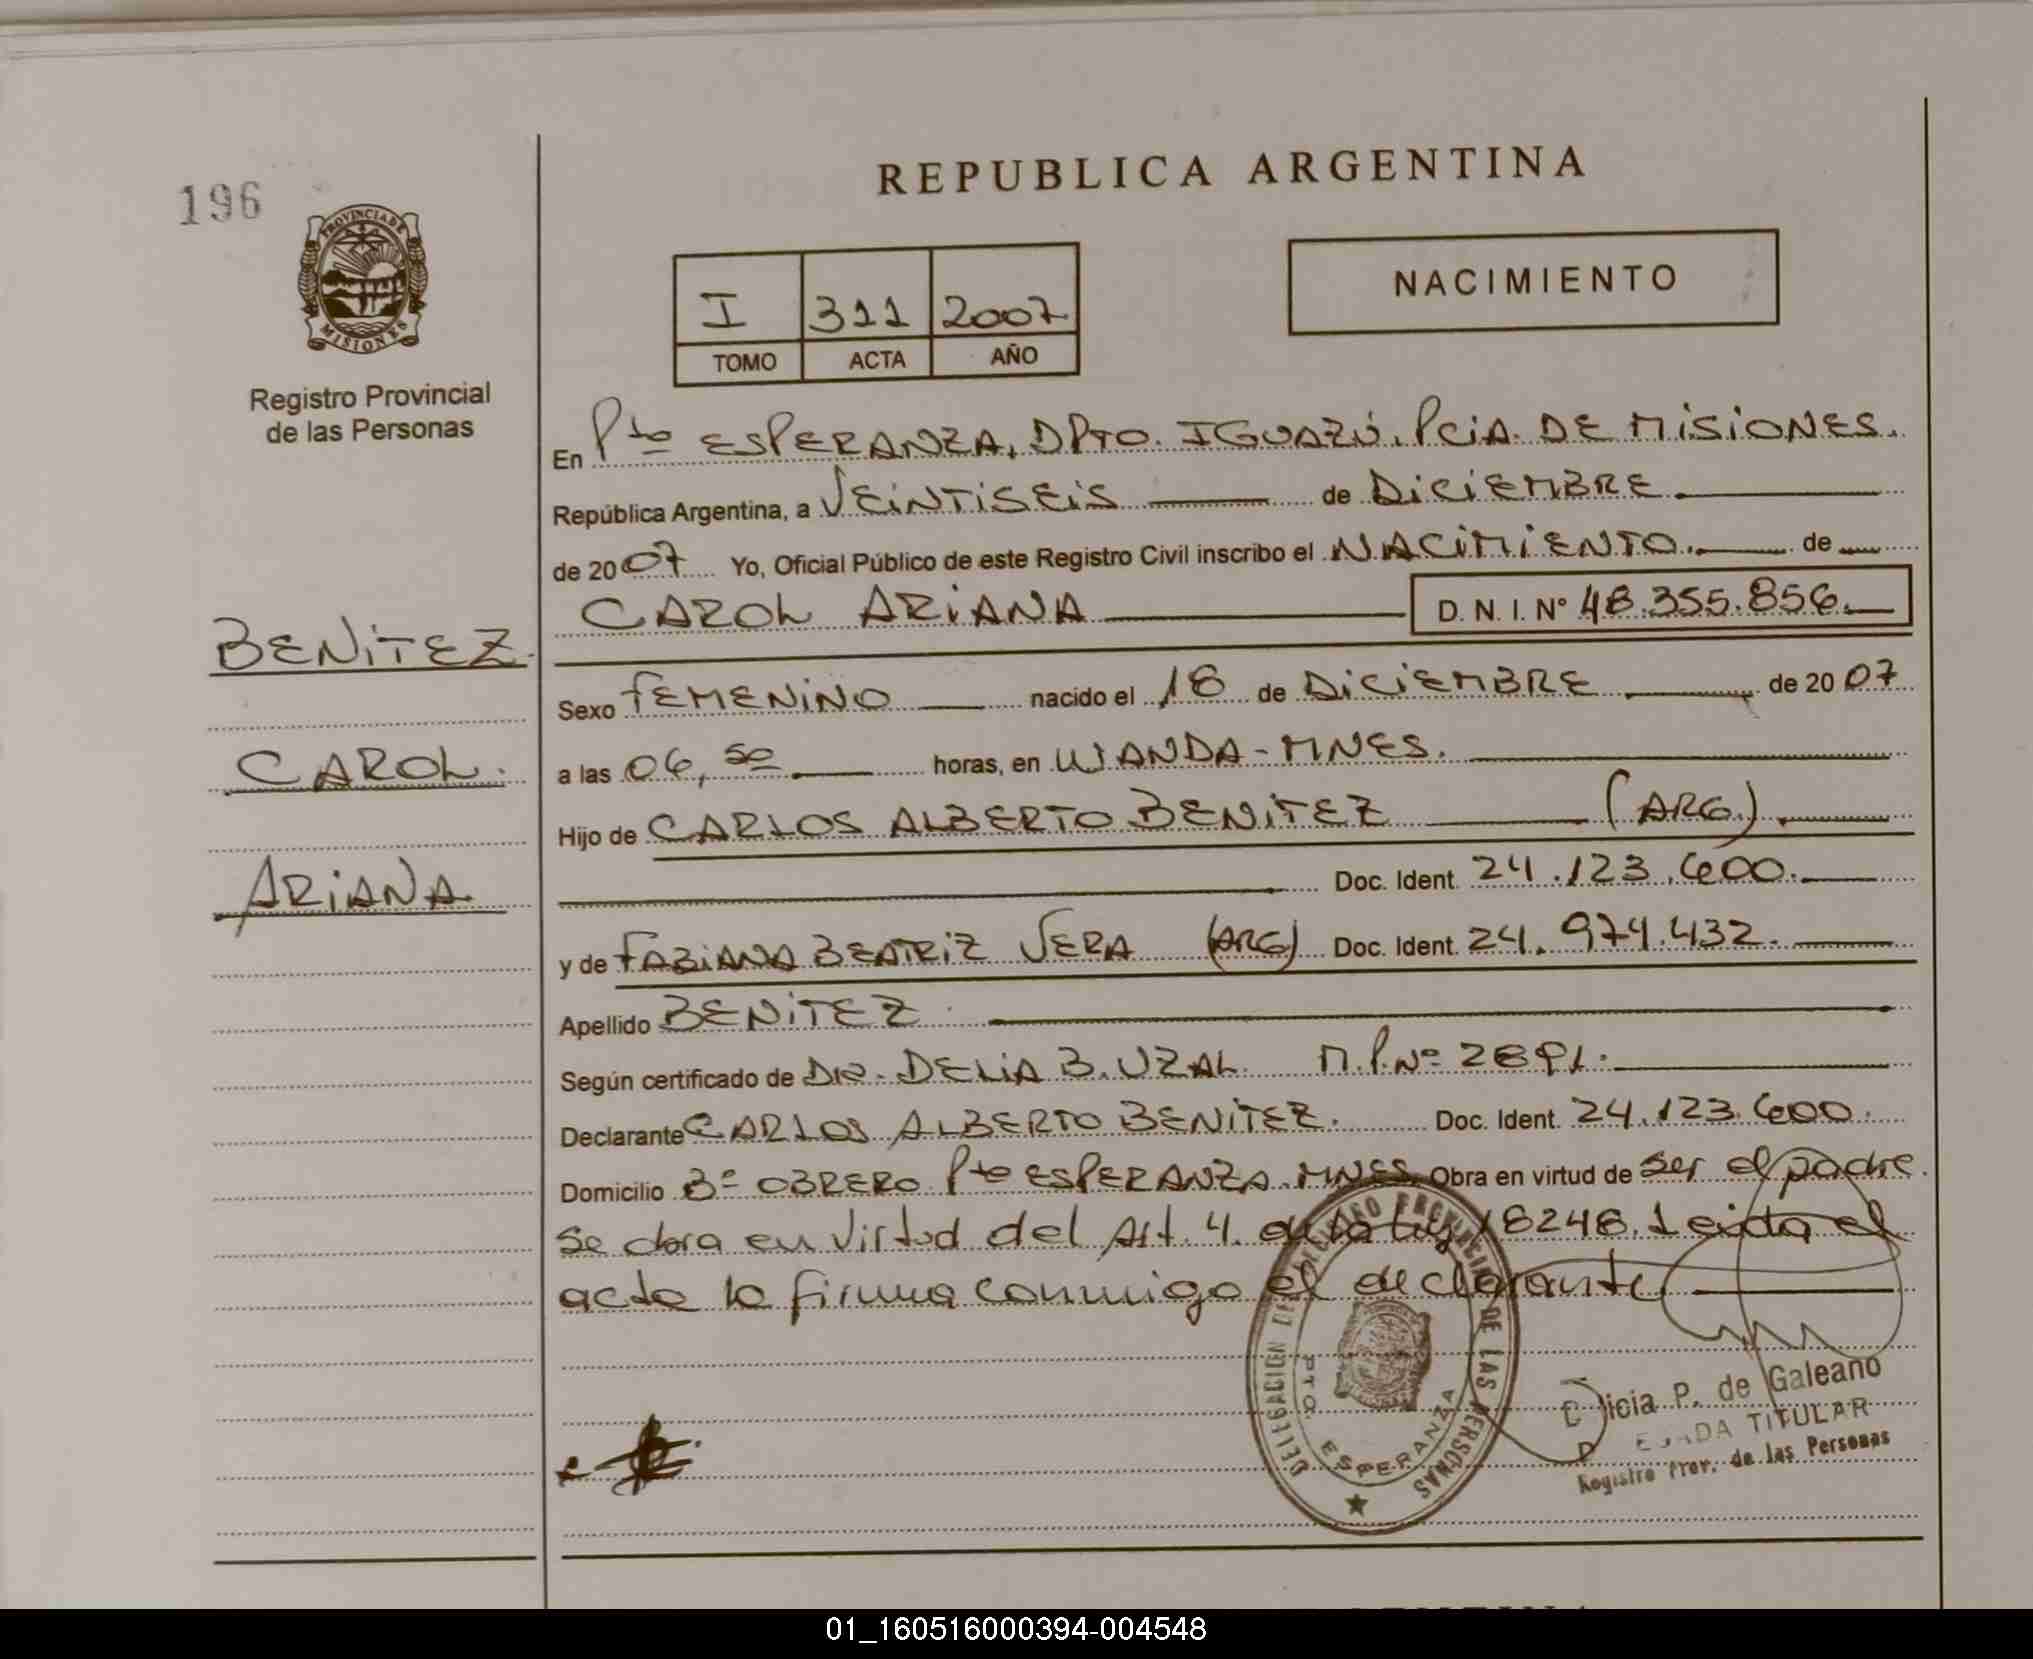 196
REPUBLICA ARGENTINA
PROVINCIA DE
MISIONES
Registro Provincial
de las Personas
I 311 2007
TOMO ACTA AÑO
NACIMIENTO
En Pto ESPERANZA, DPTO. IGUAZÚ. PCIA. DE MISIONES.
República Argentina, a VEINTISEIS de DICIEMBRE.
de 2007 Yo, Oficial Público de este Registro Civil inscribo el NACIMIENTO. de
CAROL ARIANA D. N. I. Nº 48.355.856.
BENITEZ.
CAROL.
ARIANA
Sexo FEMENINO nacido el 18 de DICIEMBRE de 2007
a las 06,50 horas, en WANDA-MNES.
Hijo de CARLOS ALBERTO BENITEZ (ARG).
Doc. Ident. 24.123.600.
y de FABIANA BEATRIZ VERA (ARG) Doc. Ident. 24.974.432.
Apellido BENITEZ
Según certificado de DR. DELIA B. UZAL. M.P.Nº 2891.
Declarante CARLOS ALBERTO BENITEZ. Doc. Ident. 24.123.600.
Domicilio Bº OBRERO Pto ESPERANZA. MNES. Obra en virtud de ser el padre.
Se obra en virtud del Art. 4. de la ley 18248. Leida el
acta la firma conmigo el declarante
DELEGACION DEL REGISTRO PROVINCIAL DE LAS PERSONAS
PTO. ESPERANZA
P. de Galeano
TITULAR
Registro Prov. de las Personas
01_160516000394-004548